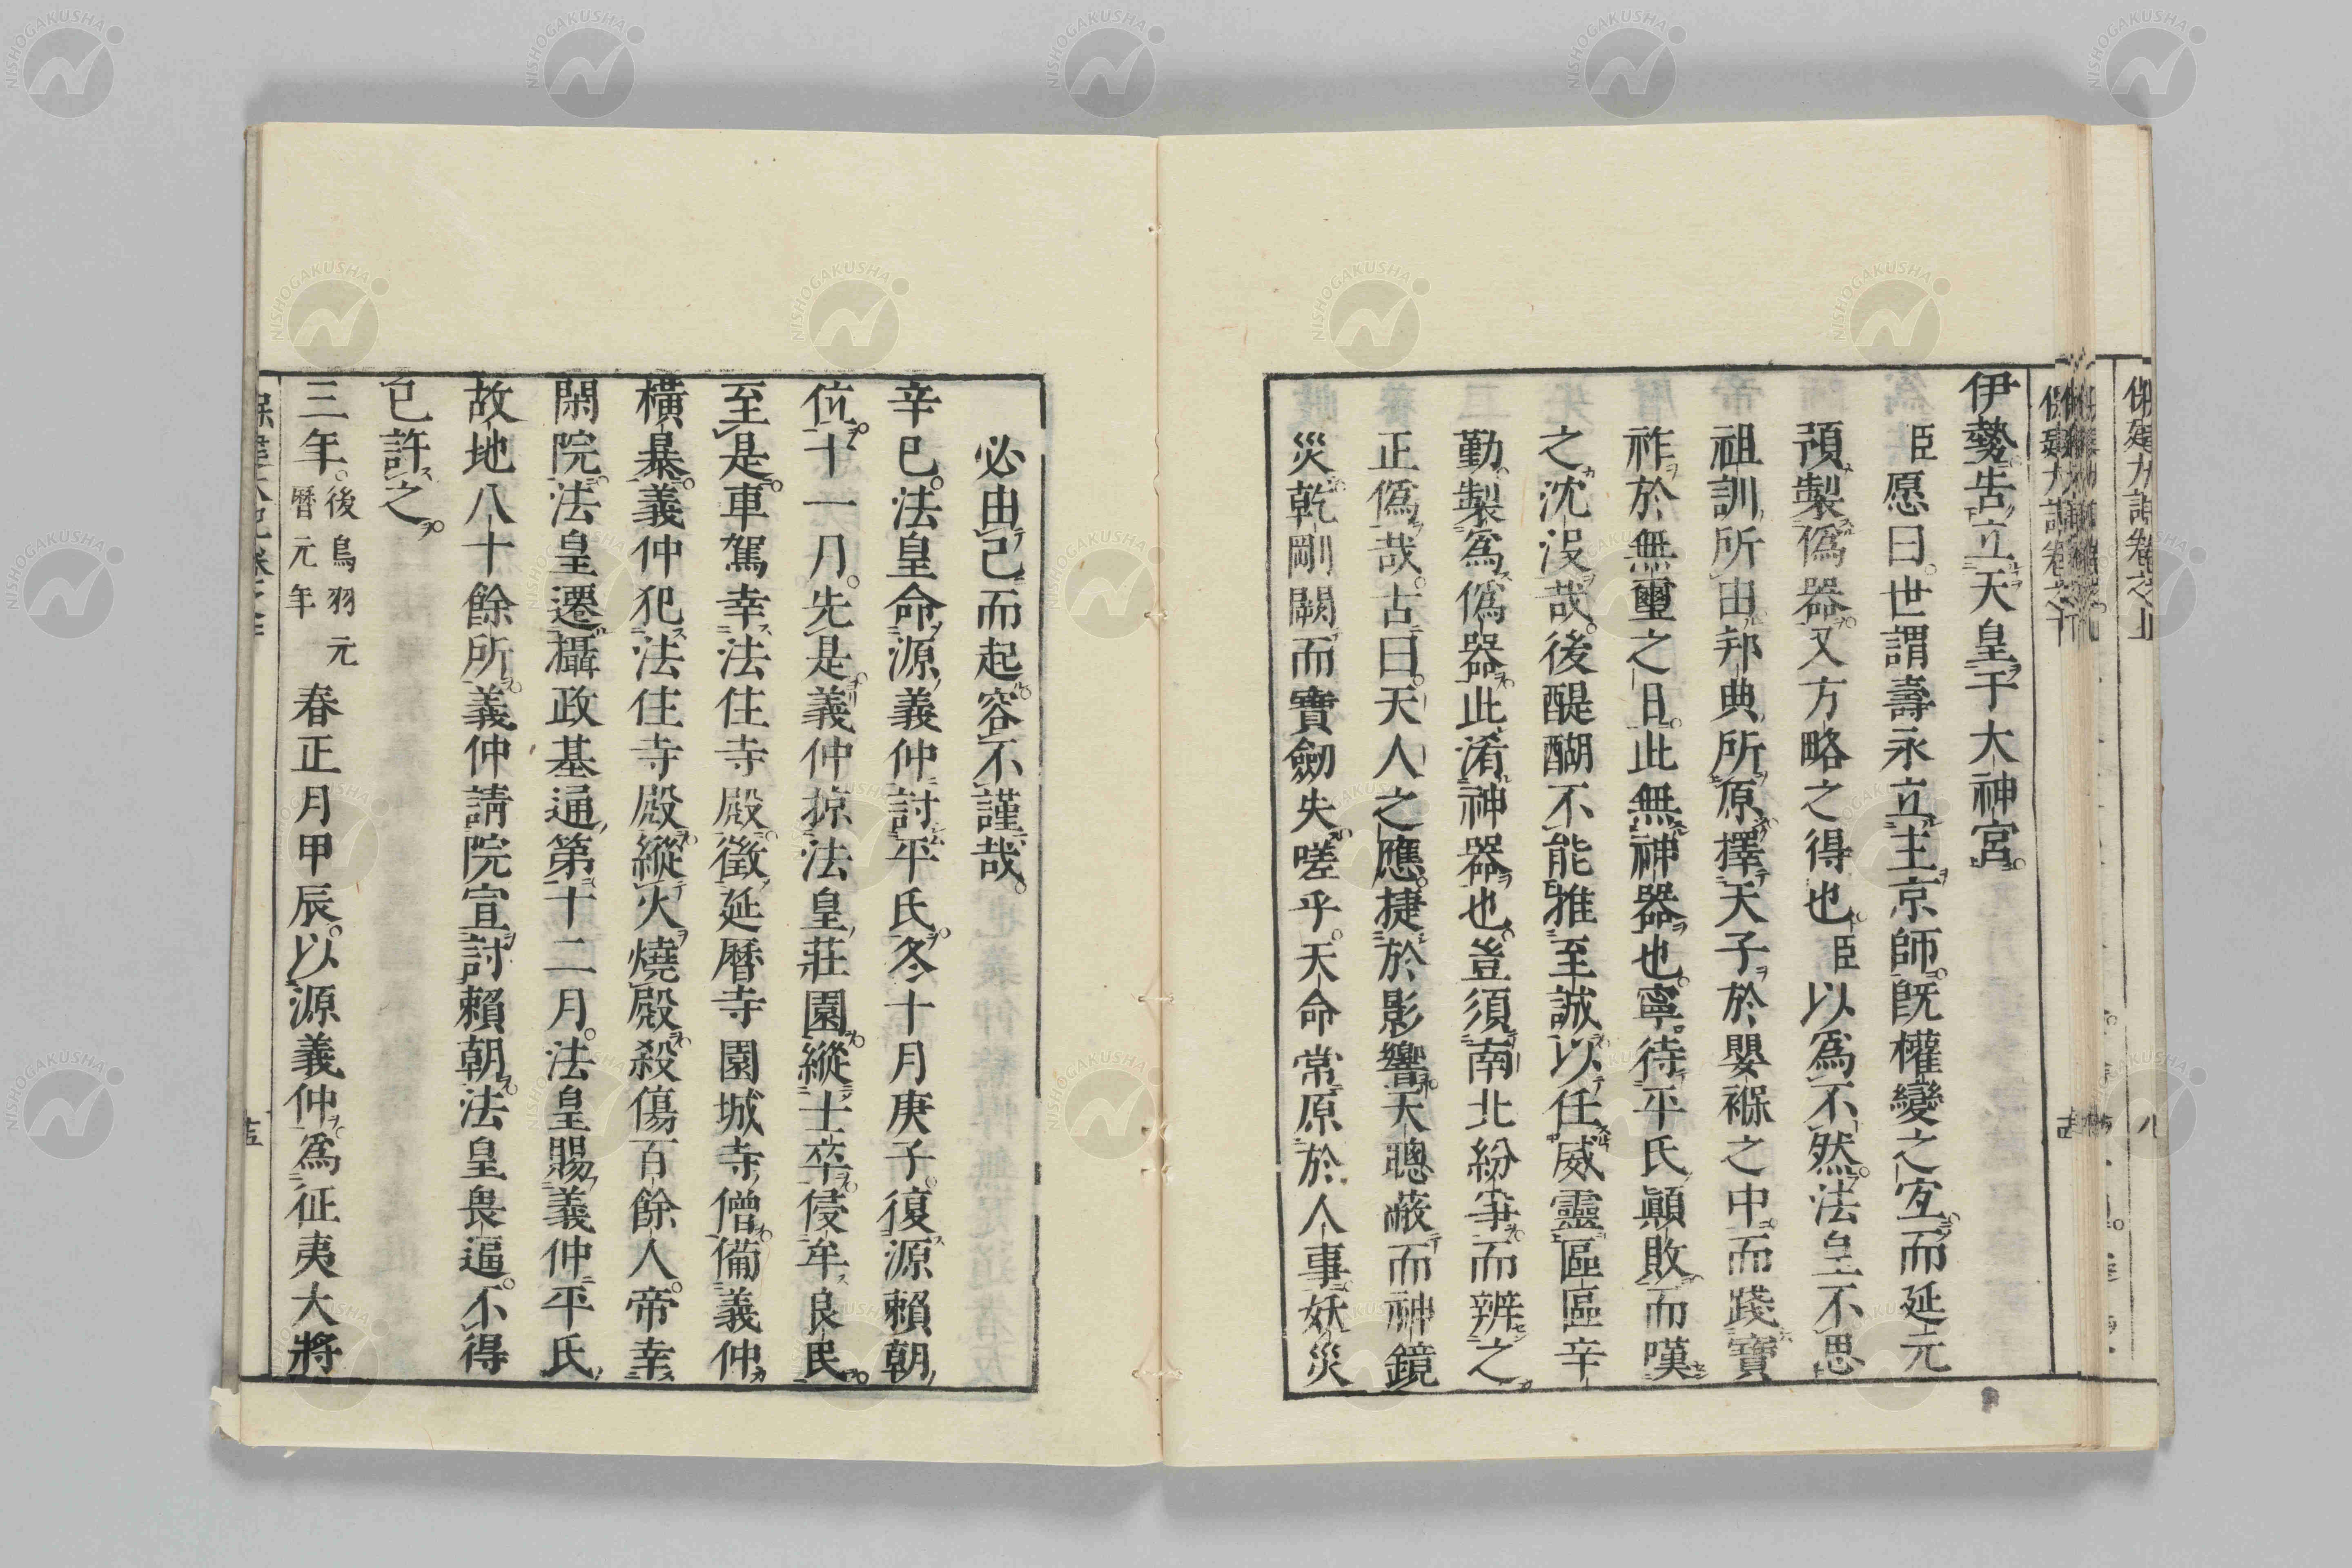 伊勢告立天皇于大神宮
臣愿曰世謂壽永立主京師既權變之宐而延元
預製僞器又方略之得也臣以爲不然法皇不思
祖訓所由邦典所原擇天子於嬰褓之中而踐寶
祚於無璽之日此無神器也寧待平氏顚敗而嘆
之沈沒哉後醍醐不能推至誠以任威靈區區辛
勤製爲僞器此淆神器也豈須南北紛爭而辨之
正僞哉古曰天人之應捷於影響天聰蔽而神鏡
災乾剛闕而寶劒失嗟乎天命常原於人事妖災
必由己而起容不謹哉
辛巳法皇命源義仲討平氏冬十月庚子復源賴朝
位十一月先是義仲掠法皇莊園縱士卒侵牟良民
至是車駕幸法住寺殿徵延曆寺園城寺僧備義仲
橫暴義仲犯法住寺殿縱火燒殿殺傷百餘人帝幸
閑院法皇遷攝政基通第十二月法皇賜義仲平氏
故地八十餘所義仲請院宣討賴朝法皇畏逼不得
已許之
三年後鳥羽元曆元年春正月甲辰以源義仲爲征夷大將
NISHOGAKUSHA